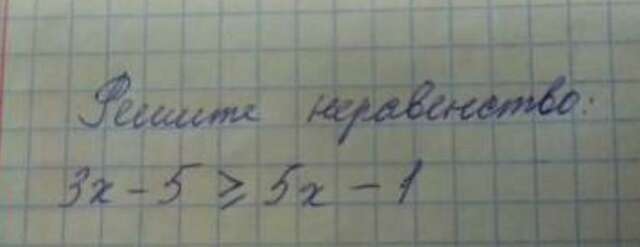 Решите неравенство:
3x - 5 ⩾ 5x - 1